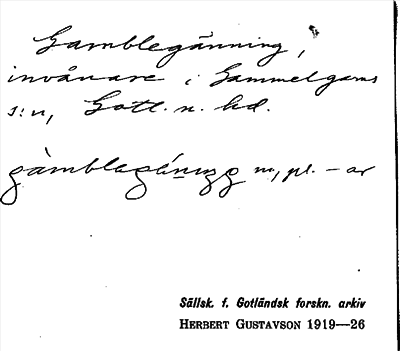 Gamblegänning,
invånare i Gammelgarns
s:n, Gotl. n. hd.
gàmblagä́nıŋg m., pl. – ar
Sällsk. f. Gotländsk forskn. arkiv
HERBERT GUSTAVSON 1919—26